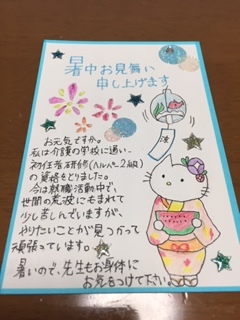 暑中お見舞い
申し上げます
涼
お元気ですか。
私は介護の学校に通い、
初任者研修(ヘルパー2級)
の資格をとりました。
今は就職活動中で、
世間の荒波にもまれて
少し苦しんでいますが、
やりたいことが見つかって
頑張っています。
暑いので、先生もお身体に
お気をつけて下さい。